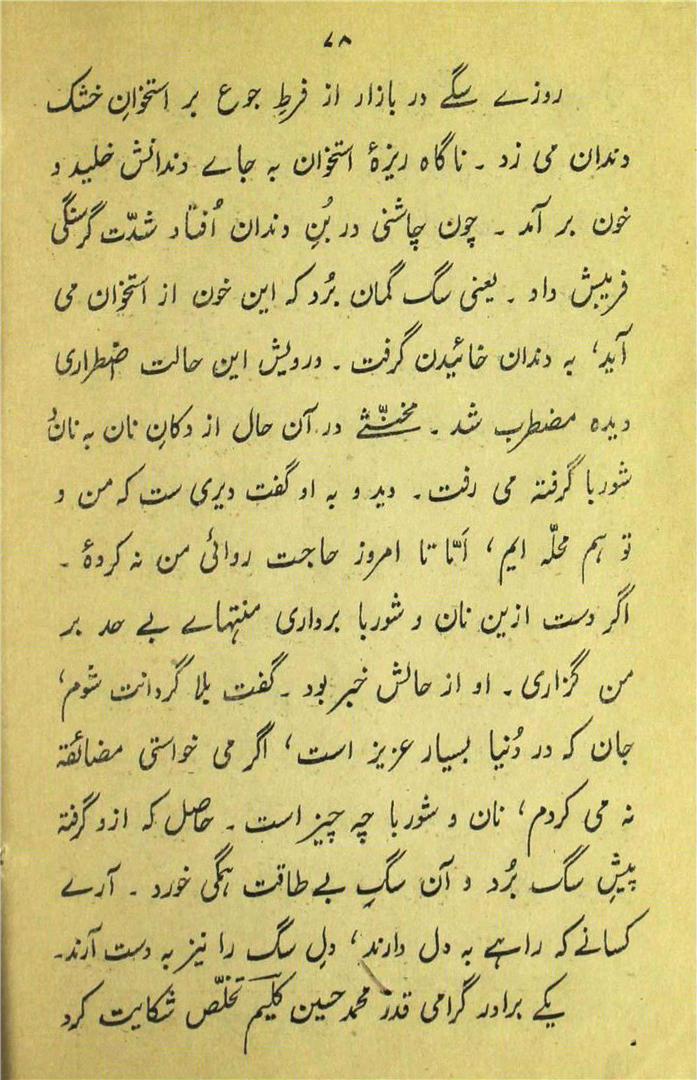 ۷۸
روزے سگے در بازار از فرطِ جوع بر استخوانِ خشک
دندان می زد ۔ ناگاہ ریزۂ استخوان بہ جاے دندانش خلید و
خون بر آمد ۔ چون چاشنی در بُنِ دندان اُفتاد شدّت گرسنگی
فریبش داد ۔ یعنی سگ گمان بُرد کہ این خون از استخوان می
آید، بہ دندان خائیدن گرفت ۔ درویش این حالت اضطراری
دیدہ مضطرب شد ۔ مخنّثے در آن حال از دکانِ نان بہ نان و
شوربا گرفتہ می رفت ۔ دید و بہ او گفت دیری ست کہ من و
تو ہم محلّہ ایم، اَمّا تا امروز حاجت روائی من نہ کردۂ ۔
اگر دست ازین نان و شوربا برداری منتہاے بے حد بر
من گزاری ۔ او از حالش خبر بود ۔ گفت بلا گردانت شوم،
جان کہ در دُنیا بسیار عزیز است، اگر می خواستی مضائقہ
نہ می کردم، نان و شوربا چہ چیز است ۔ حاصل کہ ازو گرفتہ
پیشِ سگ بُرد و آن سگِ بے طاقت ہمگی خورد ۔ آرے
کسانے کہ راہے بہ دل دارند، دلِ سگ را نیز بہ دست آرند۔
یکے برادر گرامی قدر محمد حسین کلیم تخلّص شکایت کرد